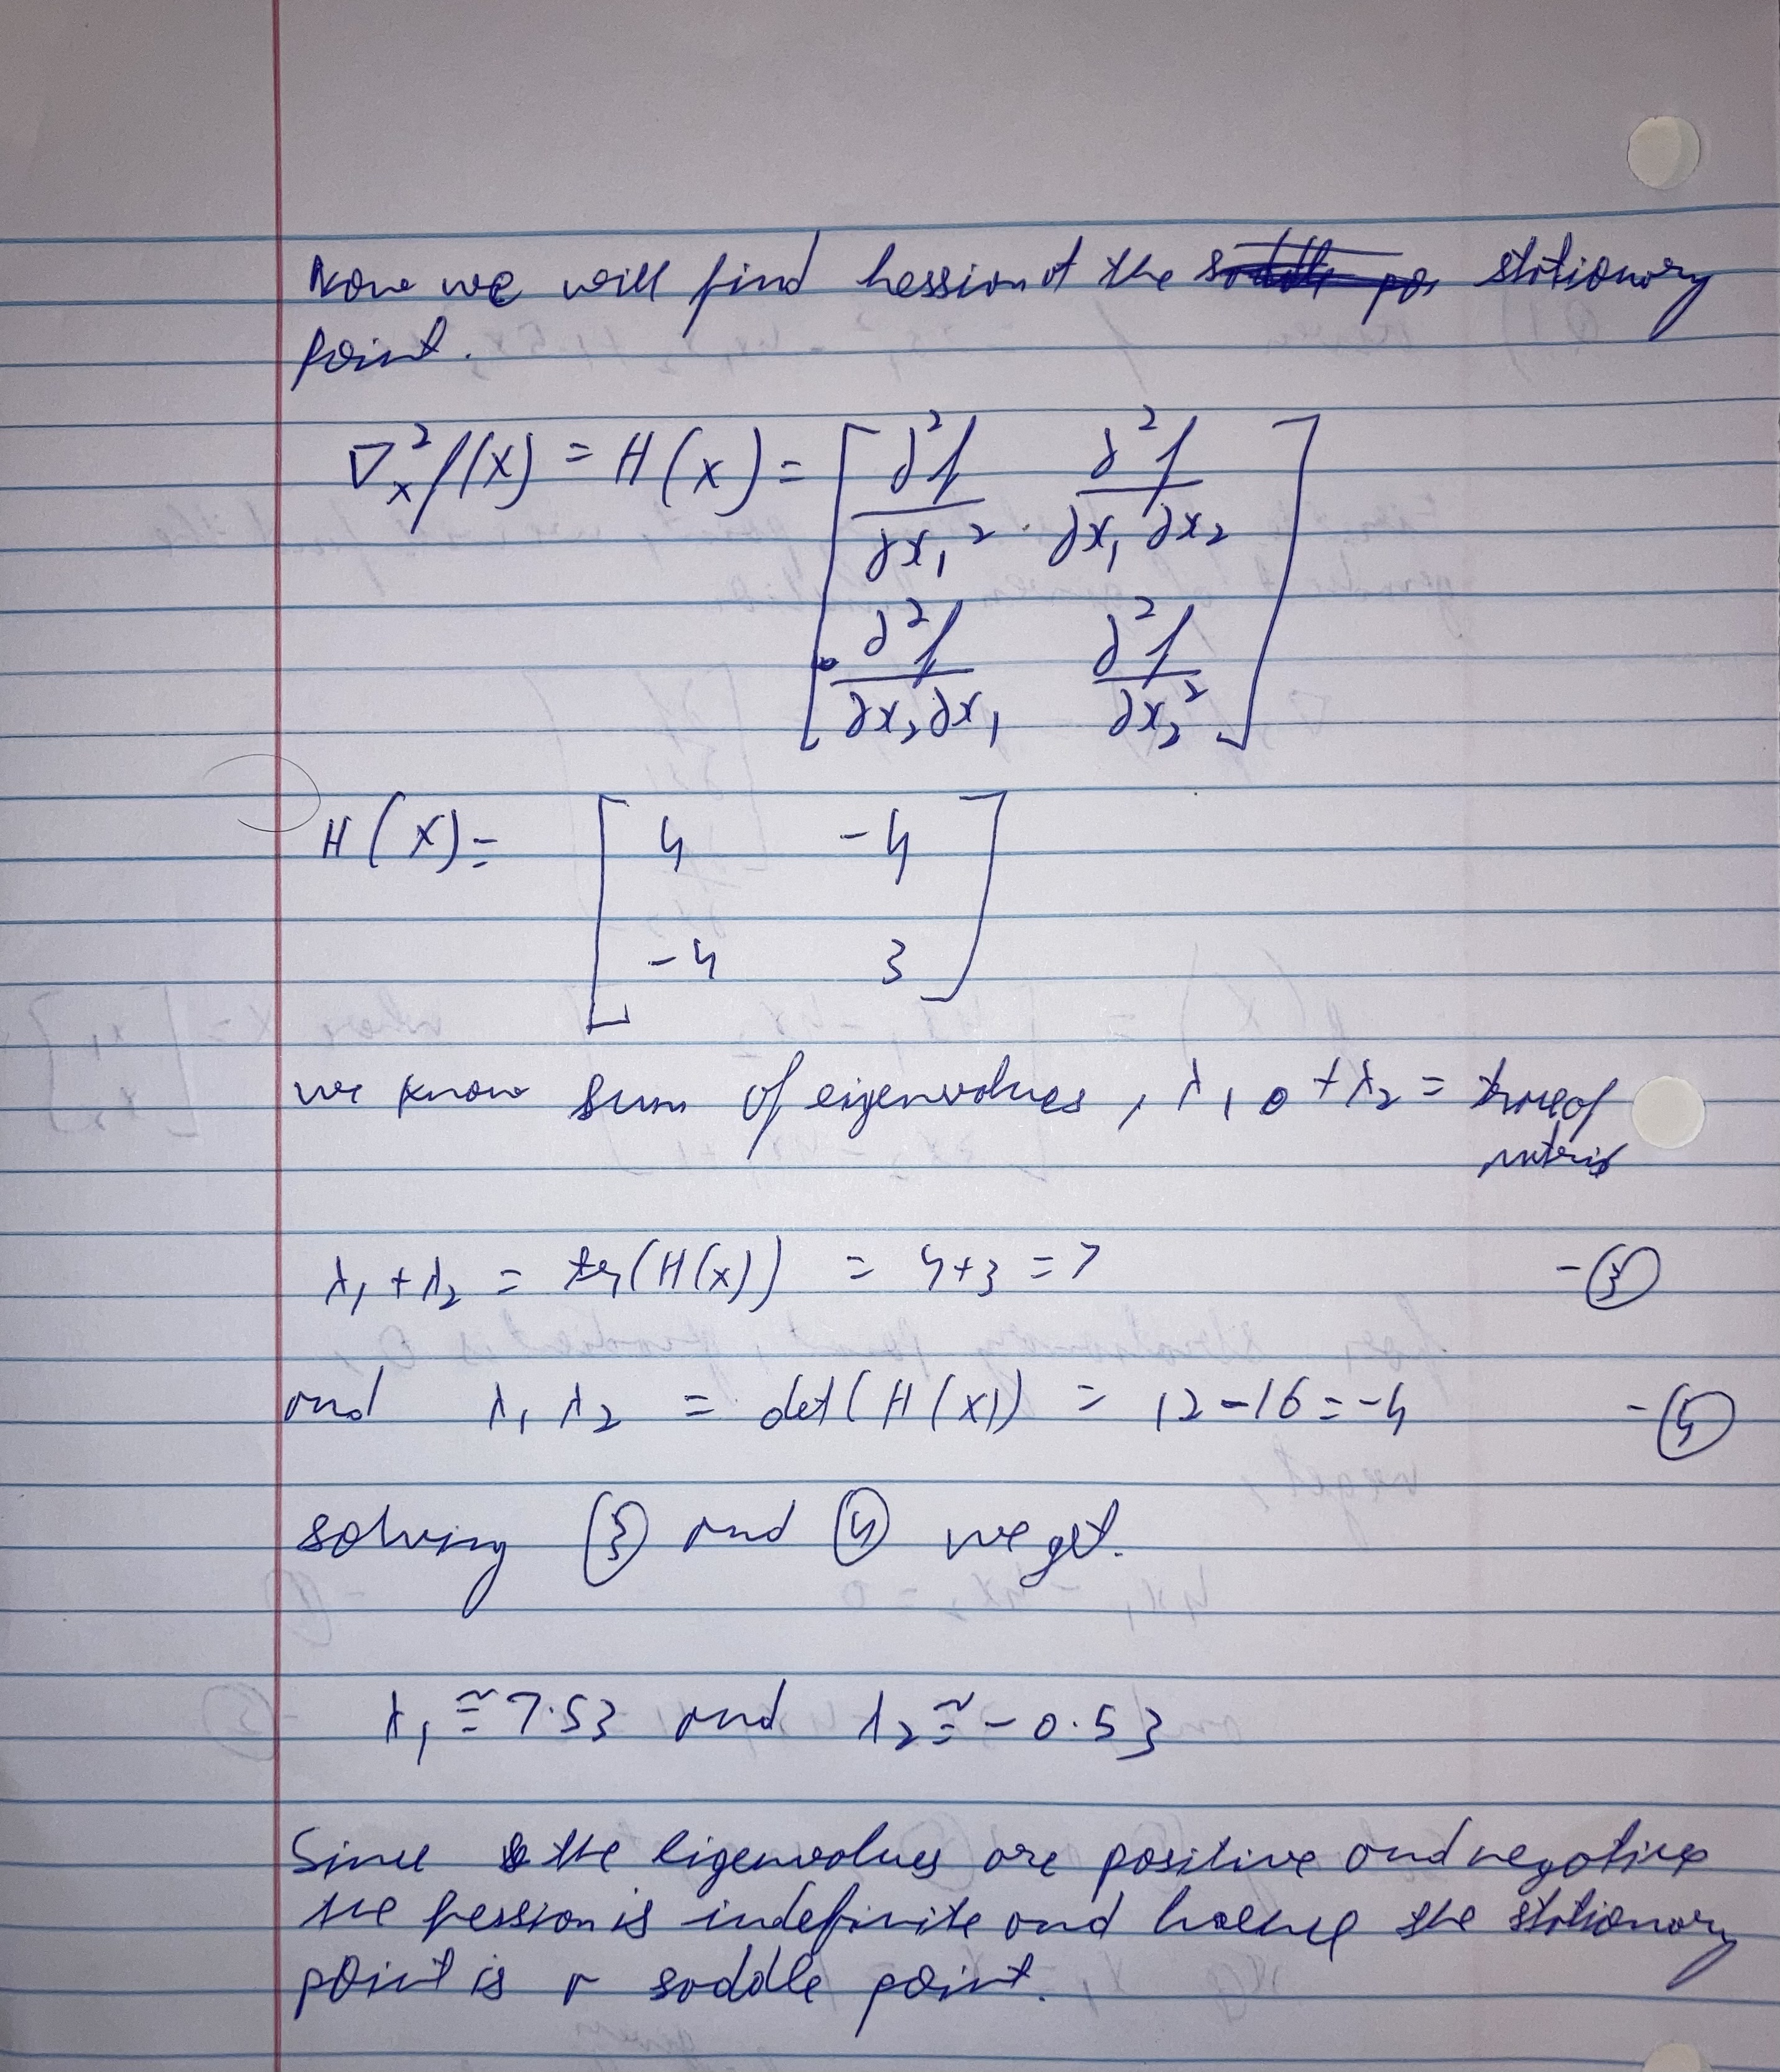 Now we will find hession of the stotionory
point.
∇ₓ² f(x) = H(x) = [ ∂²f/∂x₁² ∂²f/∂x₁∂x₂
∂²f/∂x₂∂x₁ ∂²f/∂x₂² ]
H(X) = [ 4 -4
-4 3 ]
we know sum of eigenvalues, λ₁ + λ₂ = trace of
matrix
λ₁ + λ₂ = tr(H(x)) = 4+3 = 7 - ③
and λ₁ λ₂ = det(H(x)) = 12-16 = -4 - ④
solving ③ and ④ we get.
λ₁ ≅ 7.53 and λ₂ ≅ -0.53
Since the eigenvalues are positive and negative
the hession is indefinite and hence the stotionory
point is a saddle point.